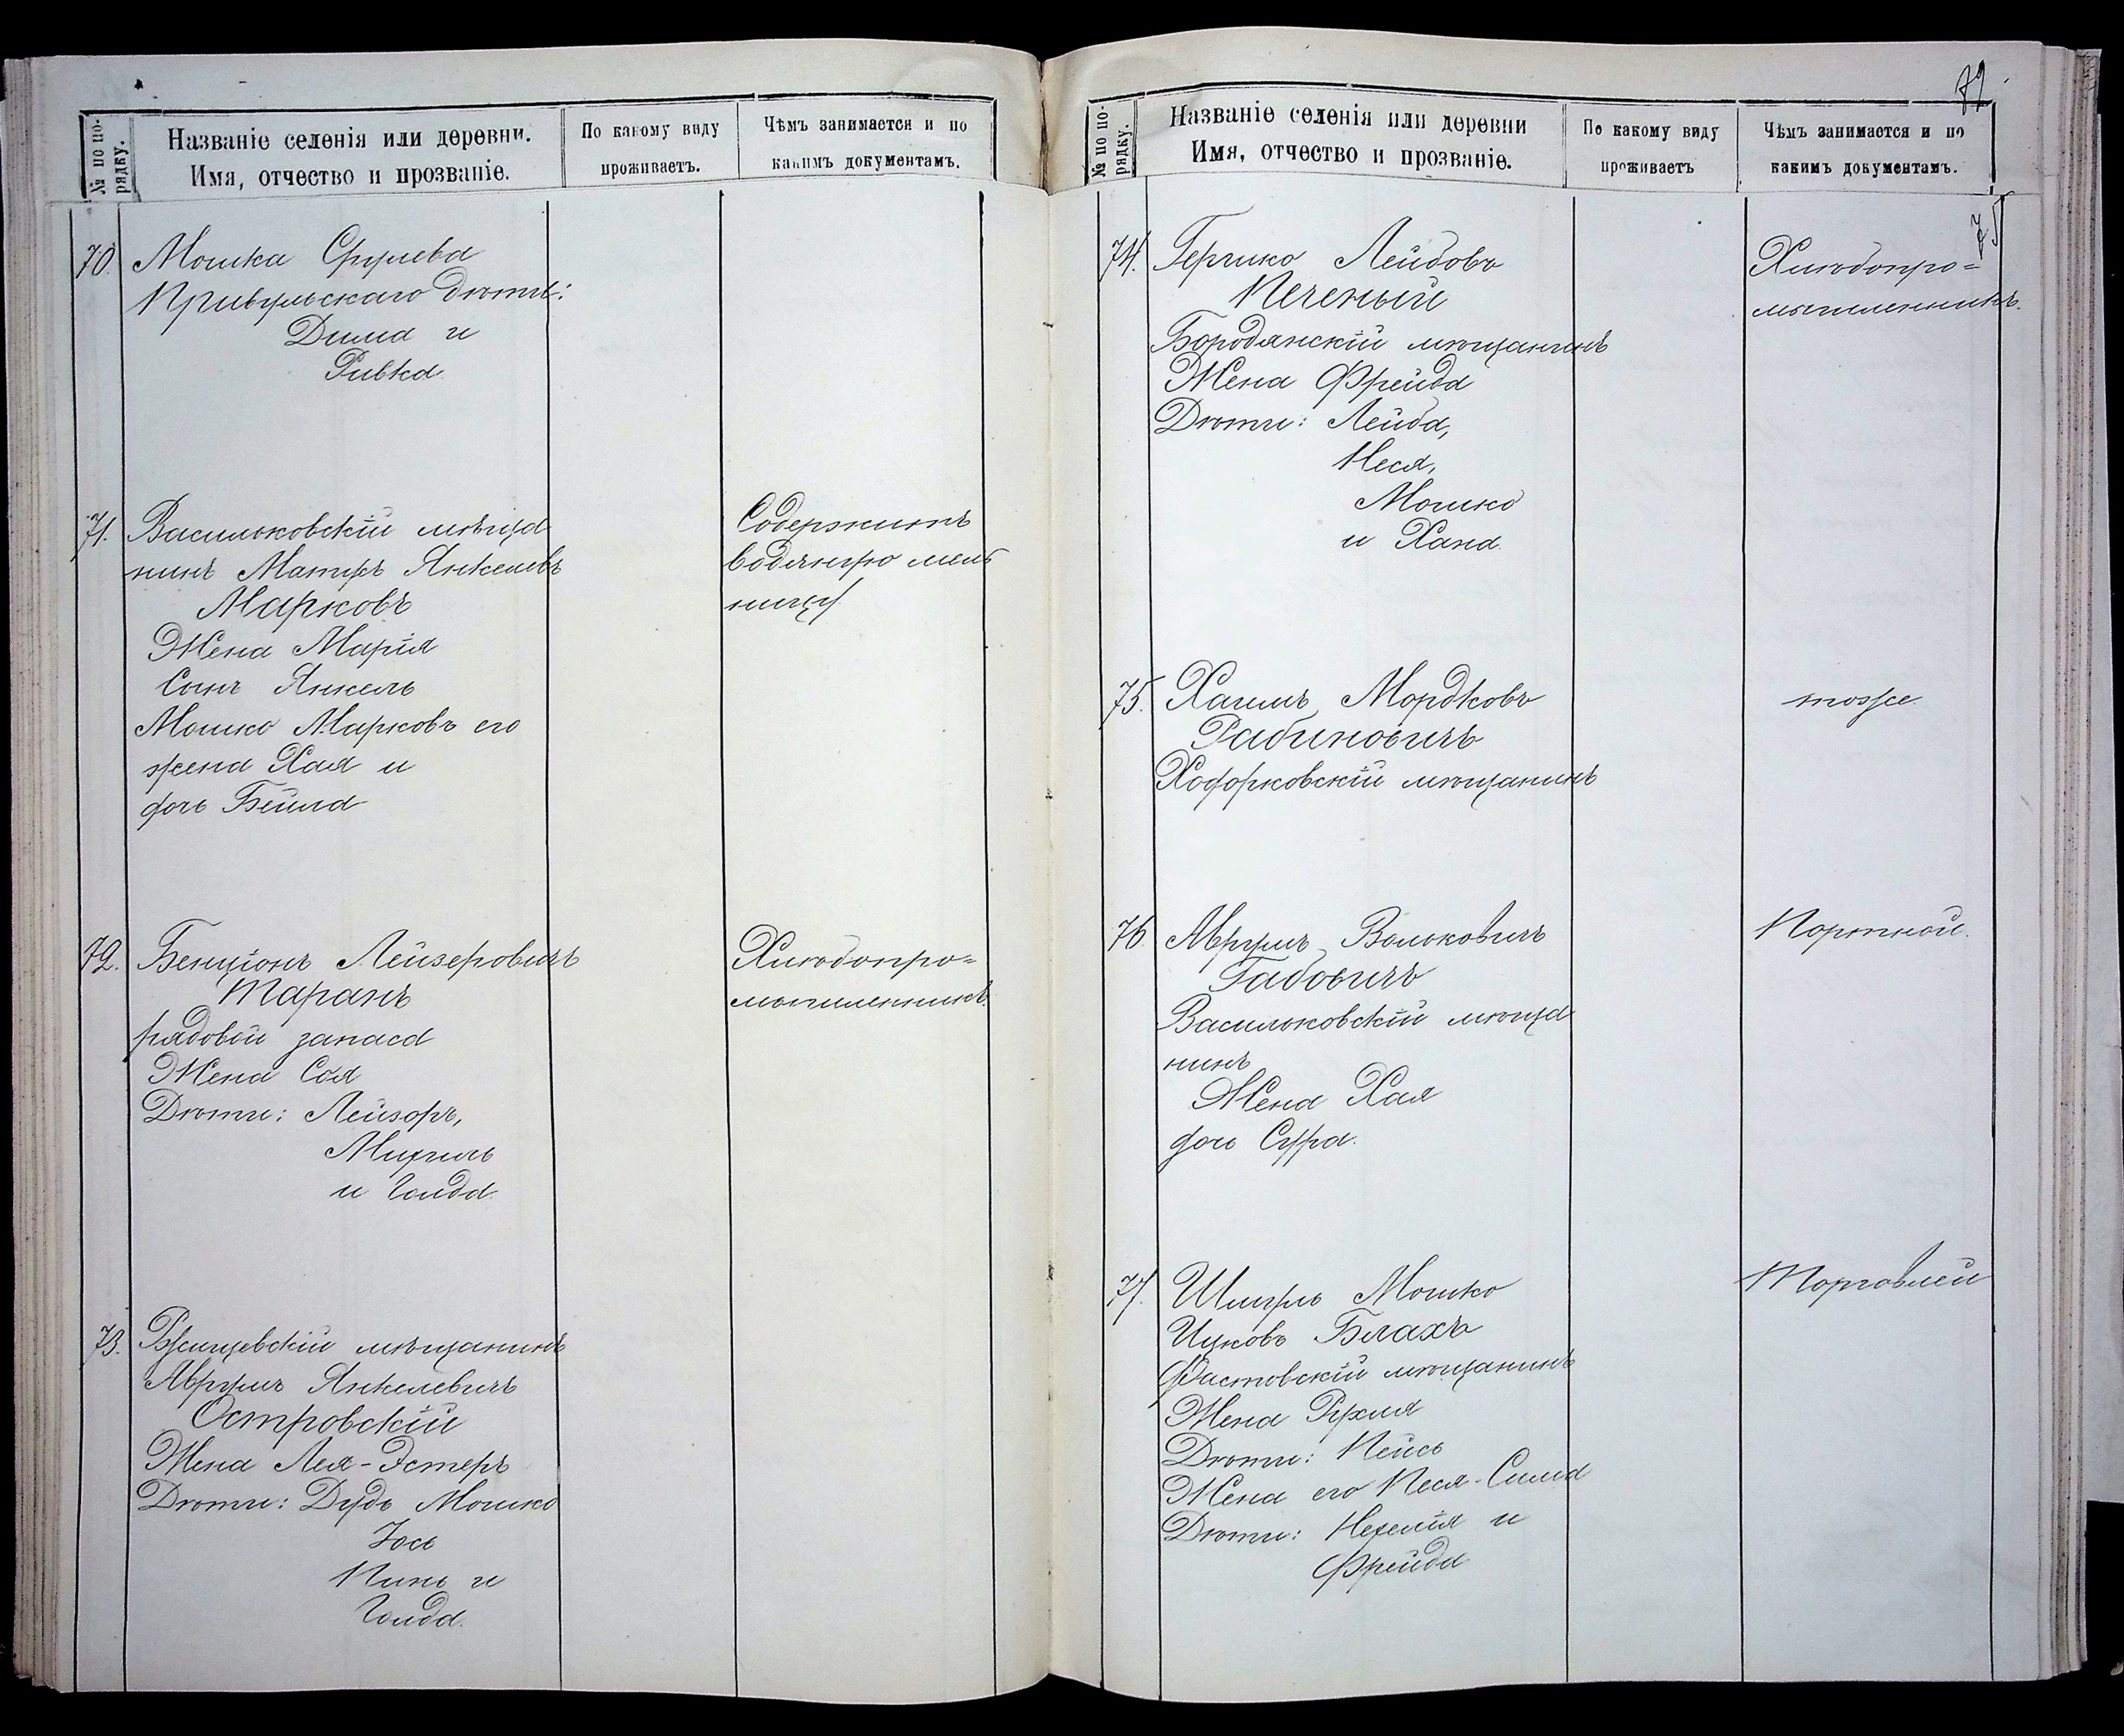 № по по-
рядку.
Названіе селенія или деревни.
Имя, отчество и прозваніе.
По какому виду
проживаетъ.
Чѣмъ занимается и по
какимъ документамъ.
70.
Мошка Срулева
Привульскаго дѣти:
Дима и
Ривка.
71.
Васильковскій мѣща
нинъ Янкелевъ
Марковъ
Жена Марія
Сынъ Янкель
Мошко Марковъ его
жена Хая и
дочь Бейла
Содержитъ
водяную мель
ницу
72.
Бенціонъ Лейзеровичъ
Таранъ
рядовой запаса
Жена Соя
Дѣти: Лейзоръ,
Михиль
и Голда.
Хлѣбопро=
мышленникъ.
73.
Ржищевскій мѣщанинъ
Аврумъ Янкелевичъ
Островскій
Жена Лея-Эстеръ
Дѣти: Дудь Мошко
Іось
Пинь и
Голда.
72
№ по по-
рядку.
Названіе селенія или деревни
Имя, отчество и прозваніе.
По какому виду
проживаетъ
Чѣмъ занимается и по
какимъ документамъ.
75
74.
Гершко Лейбовъ
Печеный
Бородянскій мѣщанинъ
Жена Фрейда
Дѣти: Лейба,
Неся,
Мошко
и Хана.
Хлѣбопро=
мышленникъ.
75.
Хаимъ Мордковъ
Рабиновичъ
Ходорковскій мѣщанинъ
тоже
76.
Аврумъ Вольковичъ
Габовичъ
Васильковскій мѣща
нинъ
Жена Хая
дочь Сура.
Портной.
77.
Шмуль Мошко
Ицковъ Блахъ
Фастовскій мѣщанинъ
Жена Рухля
Дѣти: Пейсь
Жена его Песя-Сима
Дѣти: Нехемія и
Фрейда
Торговлей